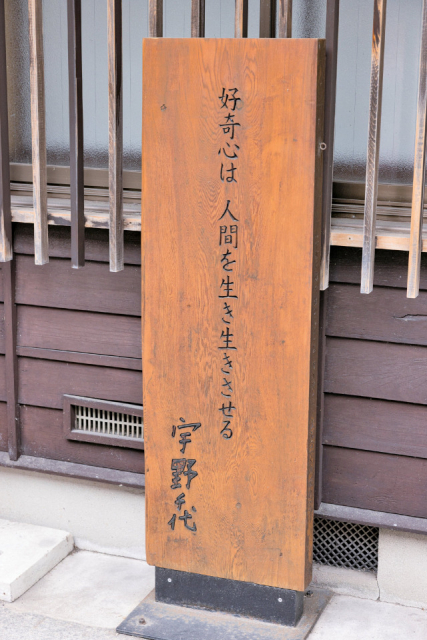 好奇心は 人間を生き生きさせる
宇野千代